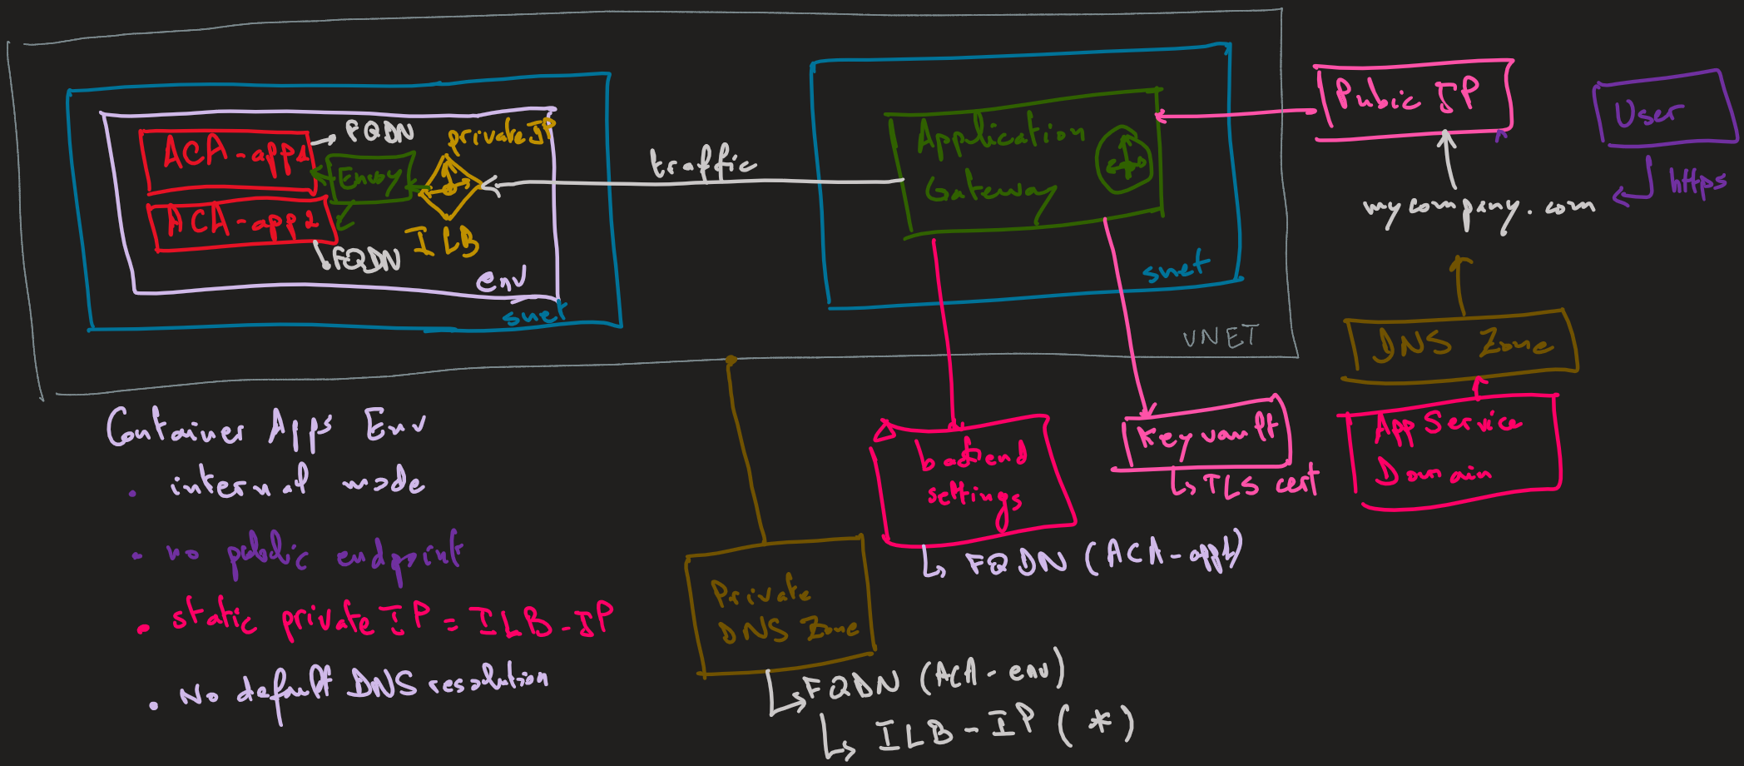 ACA-app1
FQDN
Envoy
private IP
ACA-app2
FQDN
ILB
env
snet
traffic
Application
Gateway
snet
VNET
Pubic IP
User
https
mycompany.com
DNS Zone
App Service
Domain
Keyvault
TLS cert
backend
settings
FQDN (ACA-app1)
Private
DNS Zone
FQDN (ACA-env)
ILB-IP (*)
Container Apps Env
• internal mode
• no public endpoint
• static private IP = ILB-IP
• No default DNS resolution